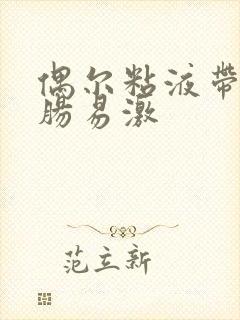 偶尔粘液帶
腸易激
范立新